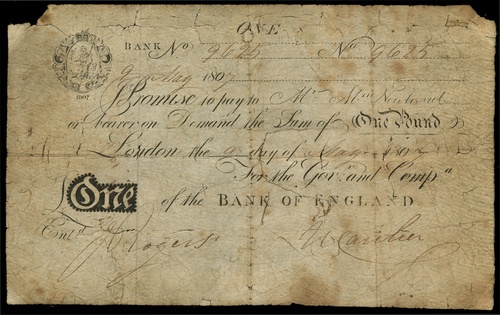 ONE
BANK No 9625 No 9625
9 May 1807
1807
Promise to pay to Mr.
or bearer on Demand the Sum of One Pound
London the 9 day of May 1807
For the Govr. and Compa.
One of the BANK OF ENGLAND
Entd.
Rogers